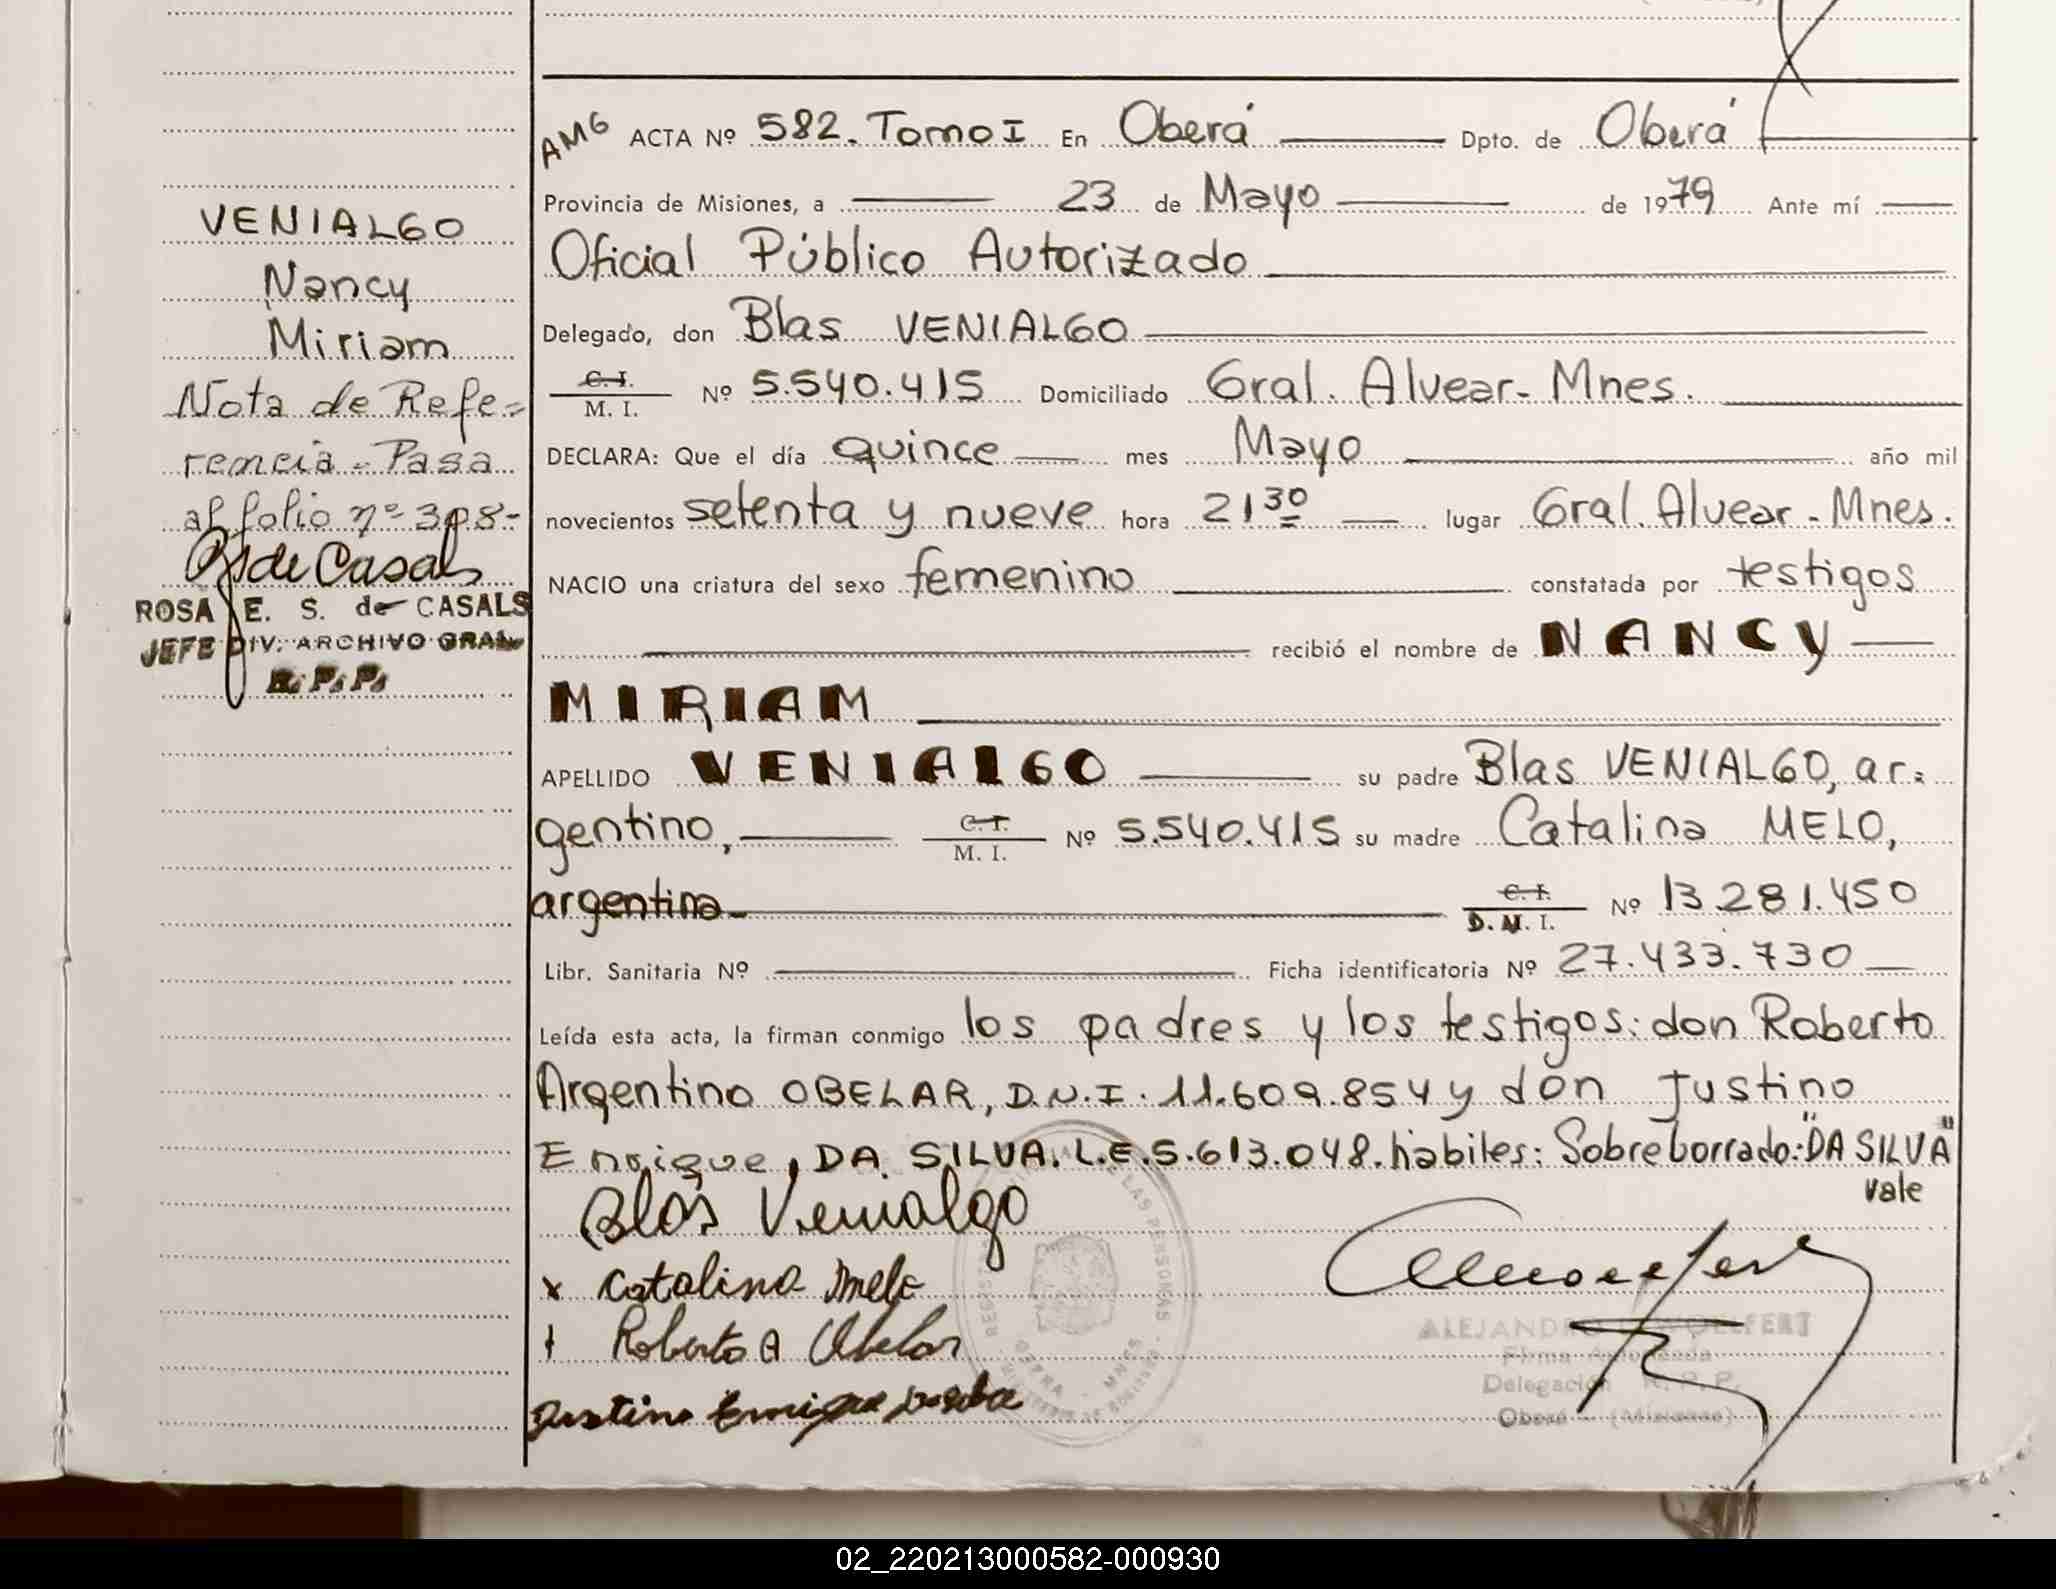 AMG ACTA Nº 582. Tomo I En Oberá Dpto. de Oberá
Provincia de Misiones, a 23 de Mayo de 1979 Ante mí
Oficial Público Autorizado
Delegado, don Blas VENIALGO
C. I.
M. I. Nº 5.540.415 Domiciliado Gral. Alvear - Mnes.
DECLARA: Que el día quince mes Mayo año mil
novecientos setenta y nueve hora 21 30 lugar Gral. Alvear - Mnes.
NACIO una criatura del sexo femenino constatada por testigos
recibió el nombre de NANCY
MIRIAM
APELLIDO VENIALGO su padre Blas VENIALGO, ar=
gentino, C. I.
M. I. Nº 5.540.415 su madre Catalina MELO,
argentina- C. I.
D. M. I. Nº 13.281.450
Libr. Sanitaria Nº Ficha identificatoria Nº 27.433.730
Leída esta acta, la firman conmigo los padres y los testigos: don Roberto
Argentino OBELAR, D.N.I. 11.609.854 y don Justino
Enrique, DA SILVA. L.E. 5.613.048. hábiles: Sobreborrado: "DA SILVA"
vale
Blas Venialgo
x Catalina Melo
Roberto A Obelar
Justino Enrique
ALEJANDRO WOELFERT
Firma Autorizada
Delegación R. P. P.
Oberá - (Misiones)
VENIALGO
Nancy
Miriam
Nota de Refe=
rencia - Pasa
al folio nº 308-
RdeCasals
ROSA E. S. de CASALS
JEFE DIV. ARCHIVO GRAL.
R. P. P.
02_220213000582-000930